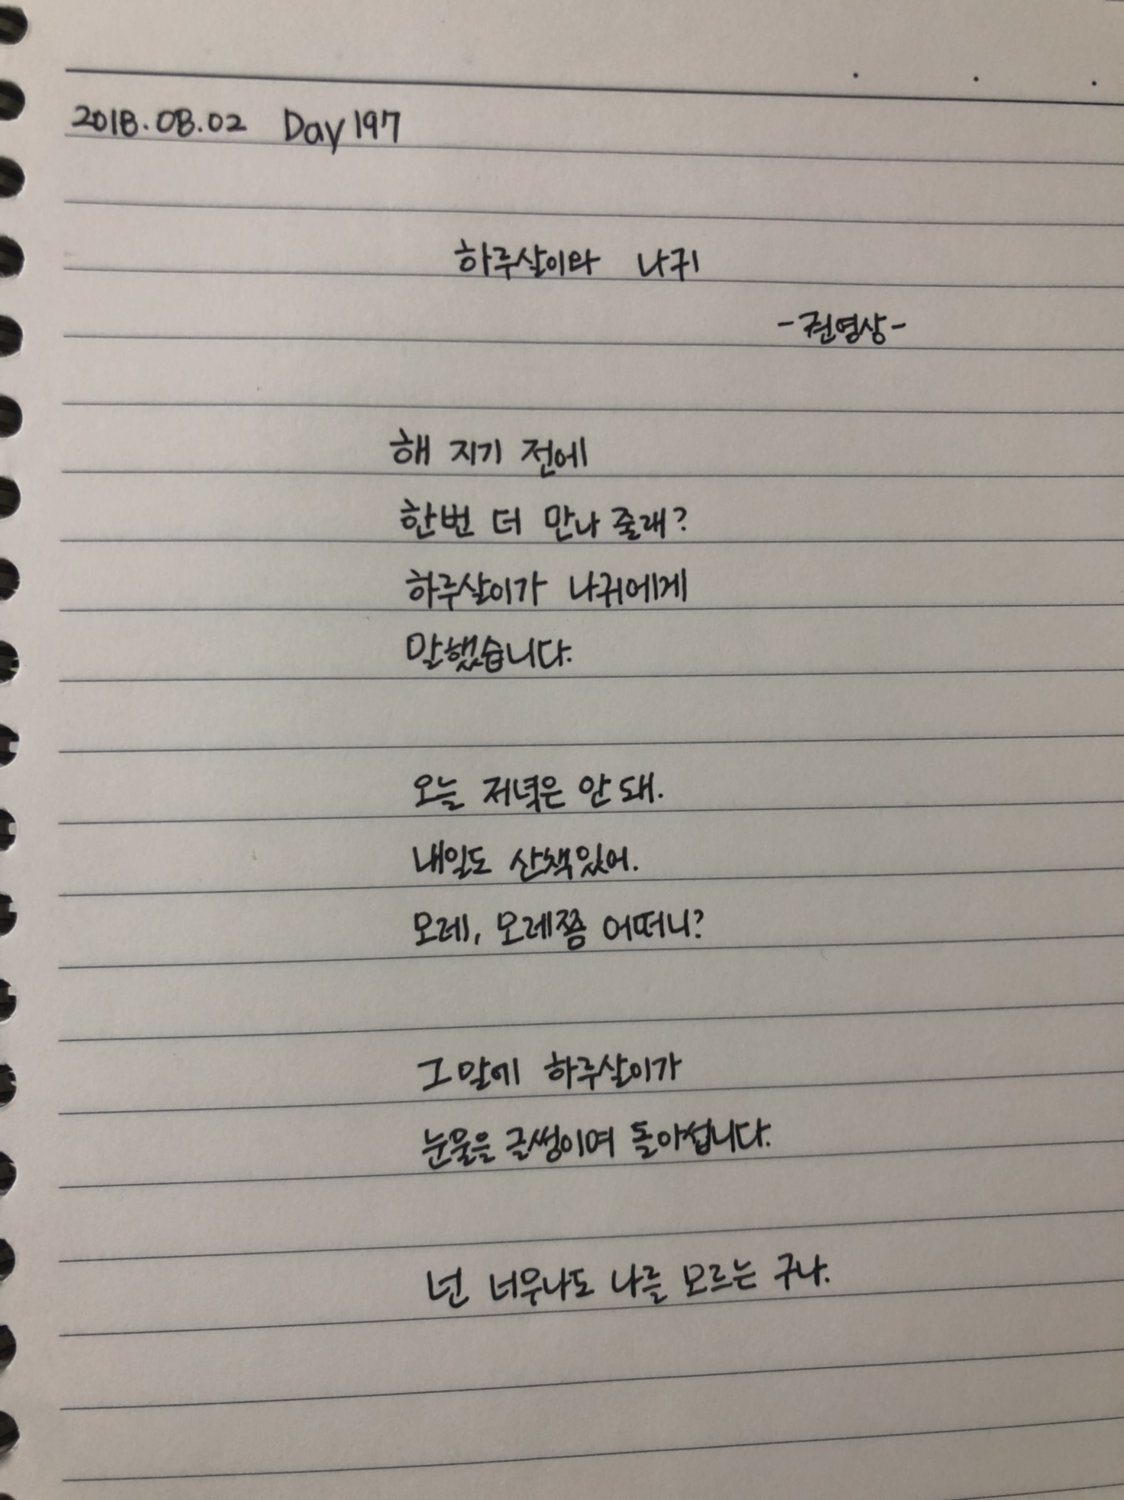 2018.08.02 Day 197
하루살이와 나귀
-권영상-
해 지기 전에
한번 더 만나 줄래?
하루살이가 나귀에게
말했습니다.
오늘 저녁은 안 돼.
내일도 산책있어.
모레, 모레쯤 어떠니?
그 말에 하루살이가
눈물을 글썽이며 돌아섭니다.
넌 너무나도 나를 모르는 구나.